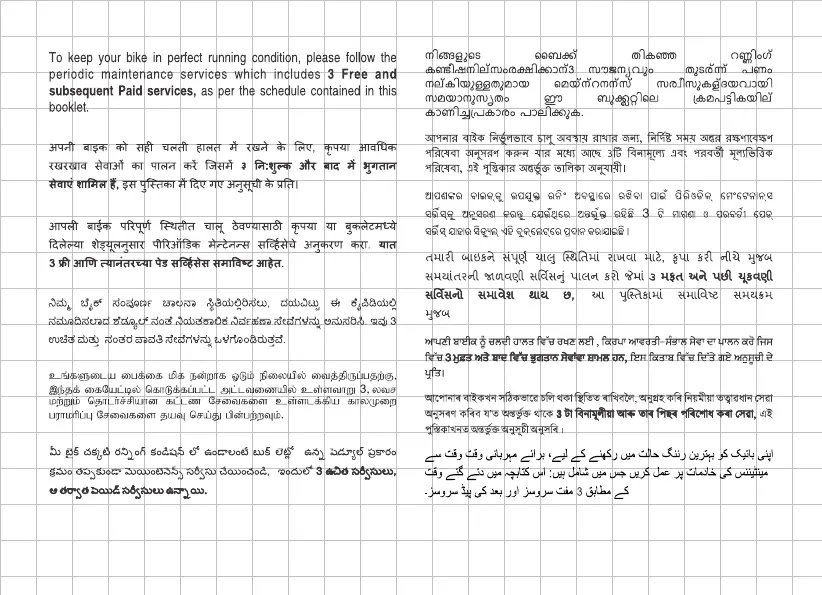 To keep your bike in perfect running condition, please follow the
periodic maintenance services which includes 3 Free and
subsequent Paid services, as per the schedule contained in this
booklet.
अपनी बाइक को सही चलती हालत में रखने के लिए, कृपया आवधिक
रखरखाव सेवाओं का पालन करें जिसमें ३ नि:शुल्क और बाद में भुगतान
सेवाएं शामिल हैं, इस पुस्तिका में दिए गए अनुसूची के प्रति।
आपली बाईक परिपूर्ण स्थितीत चालू ठेवण्यासाठी कृपया या बुकलेटमध्ये
दिलेल्या शेड्यूलनुसार पीरिऑडिक मेन्टेनन्स सर्व्हिसेचे अनुकरण करा. यात
3 फ्री आणि त्यानंतरच्या पेड सर्व्हिसेस समाविष्ट आहेत.
ನಿಮ್ಮ ಬೈಕ್ ಸಂಪೂರ್ಣ ಚಾಲನಾ ಸ್ಥಿತಿಯಲ್ಲಿರಿಸಲು, ದಯವಿಟ್ಟು ಈ ಕೈಪಿಡಿಯಲ್ಲಿ
ನಮೂದಿಸಲಾದ ಶೆಡ್ಯೂಲ್ ನಂತೆ ನಿಯತಕಾಲಿಕ ನಿರ್ವಹಣಾ ಸೇವೆಗಳನ್ನು ಅನುಸರಿಸಿ. ಇವು 3
ಉಚಿತ ಮತ್ತು ನಂತರ ಪಾವತಿ ಸೇವೆಗಳನ್ನು ಒಳಗೊಂಡಿರುತ್ತವೆ.
உங்களுடைய பைக்கை மிக நன்றாக ஓடும் நிலையில் வைத்திருப்பதற்கு,
இந்தக் கையேட்டில் கொடுக்கப்பட்ட அட்டவணையில் உள்ளவாறு 3, லவச
மற்றும் தொடர்ச்சியான கட்டண சேவைகளை உள்ளடக்கிய காலமுறை
பராமரிப்பு சேவைகளை தயவு செய்து பின்பற்றவும்.
మీ బైక్ చక్కటి రన్నింగ్ కండిషన్ లో ఉండాలంటే బుక్ లెట్లో ఉన్న షెడ్యూల్ ప్రకారం
క్రమం తప్పకుండా మెయింటెనెన్స్ సర్వీసు చేయించండి, ఇందులో 3 ఉచిత సర్వీసులు,
ఆ తర్వాత పెయిడ్ సర్వీసులు ఉన్నాయి.
നിങ്ങളുടെ ബൈക്ക് തികഞ്ഞ റണ്ണിംഗ്
കണ്ടീഷനില്സംരക്ഷിക്കാന്3 സൗജന്യവും തുടര്ന്ന് പണം
നല്കിയുള്ളതുമായ മെയ്ന്റനന്സ് സര്വീസുകള്ദയവായി
സമയാനുസൃതം ഈ ബുക്ക്ലറ്റിലെ ക്രമപട്ടികയില്
കാണിച്ചപ്രകാരം പാലിക്കുക.
আপনার বাইক নির্ভুলভাবে চালু অবস্থায় রাখার জন্য, নির্দিষ্ট সময় অন্তর রক্ষণাবেক্ষণ
পরিষেবা অনুসরণ করুন যার মধ্যে আছে 3টি বিনামূল্যে এবং পরবর্তী মূল্যভিত্তিক
পরিষেবা, এই পুস্তিকার অন্তর্ভুক্ত তালিকা অনুযায়ী।
ଆପଣଙ୍କର ବାଇକକୁ ଉପଯୁକ୍ତ ରନିଂ ଅବସ୍ଥାରେ ରଖିବା ପାଇଁ ପିରିଓଡିକ୍ ମେଂଟେନାନ୍ସ
ସର୍ଭିସକୁ ଅନୁସରଣ କରନ୍ତୁ ଯେଉଁଥିରେ ଅନ୍ତର୍ଭୁକ୍ତ ରହିଛି 3 ଟି ମାଗଣା ଓ ପରବର୍ତୀ ପେଡ୍
ସର୍ଭିସ୍ ଯାହାର ସିଡୁଲ୍ ଏହି ବୁକ୍‌ଲେଟ୍‌ରେ ପ୍ରଦାନ କରାଯାଇଛି।
તમારી બાઇકને સંપૂર્ણ ચાલુ સ્થિતિમાં રાખવા માટે, કૃપા કરી નીચે મુજબ
સમયાંતરની જાળવણી સર્વિસનું પાલન કરો જેમાં ૩ મફત અને પછી ચૂકવણી
સર્વિસનો સમાવેશ થાય છે, આ પુસ્તિકામાં સમાવિષ્ટ સમયક્રમ
મુજબ
ਆਪਣੀ ਬਾਈਕ ਨੂੰ ਚਲਦੀ ਹਾਲਤ ਵਿੱਚ ਰਖਣ ਲਈ , ਕਿਰਪਾ ਆਵਰਤੀ-ਸੰਭਾਲ ਸੇਵਾ ਦਾ ਪਾਲਨ ਕਰੋ ਜਿਸ
ਵਿੱਚ 3 ਮੁਫ਼ਤ ਅਤੇ ਬਾਦ ਵਿੱਚ ਭੁਗਤਾਨ ਸੇਵਾਂਵਾ ਸ਼ਾਮਲ ਹਨ, ਇਸ ਕਿਤਾਬ ਵਿੱਚ ਦਿੱਤੇ ਗਏ ਅਨੁਸੂਚੀ ਦੇ
ਪ੍ਰਤਿ।
আপোনাৰ বাইকখন সঠিকভাৱে চলি থকা স্থিতিত ৰাখিবলৈ, অনুগ্ৰহ কৰি নিয়মীয়া তত্বাৱধান সেৱা
অনুসৰণ কৰিব য'ত অন্তৰ্ভুক্ত থাকে 3 টা বিনামূলীয়া আৰু তাৰ পিছৰ পৰিশোধ কৰা সেৱা, এই
পুস্তিকাখনত অন্তৰ্ভুক্ত অনুসূচী অনুসৰি ।
اپنی بائیک کو بہترین رننگ حالت میں رکھنے کے لیے، برائے مہربانی وقت وقت سے
مینٹیننس کی خادمات پر عمل کریں جس میں شامل ہیں: اس کتابچہ میں دئے گئے وقت
کے مطابق 3 مفت سروسز اور بعد کی پیڈ سروسز۔